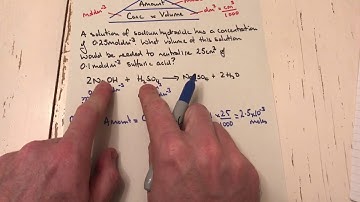 moldm⁻³ Amount dm³ = cm³/1000
Conc × Volume
A solution of sodium hydroxide has a concentration
of 0.25moldm⁻³. What volume of this solution
would be needed to neutralise 25cm³ of
0.1moldm⁻³ sulfuric acid?
2NaOH + H₂SO₄ → + 2H₂O
Amount = × 25/1000 = 2.5×10⁻³
moles